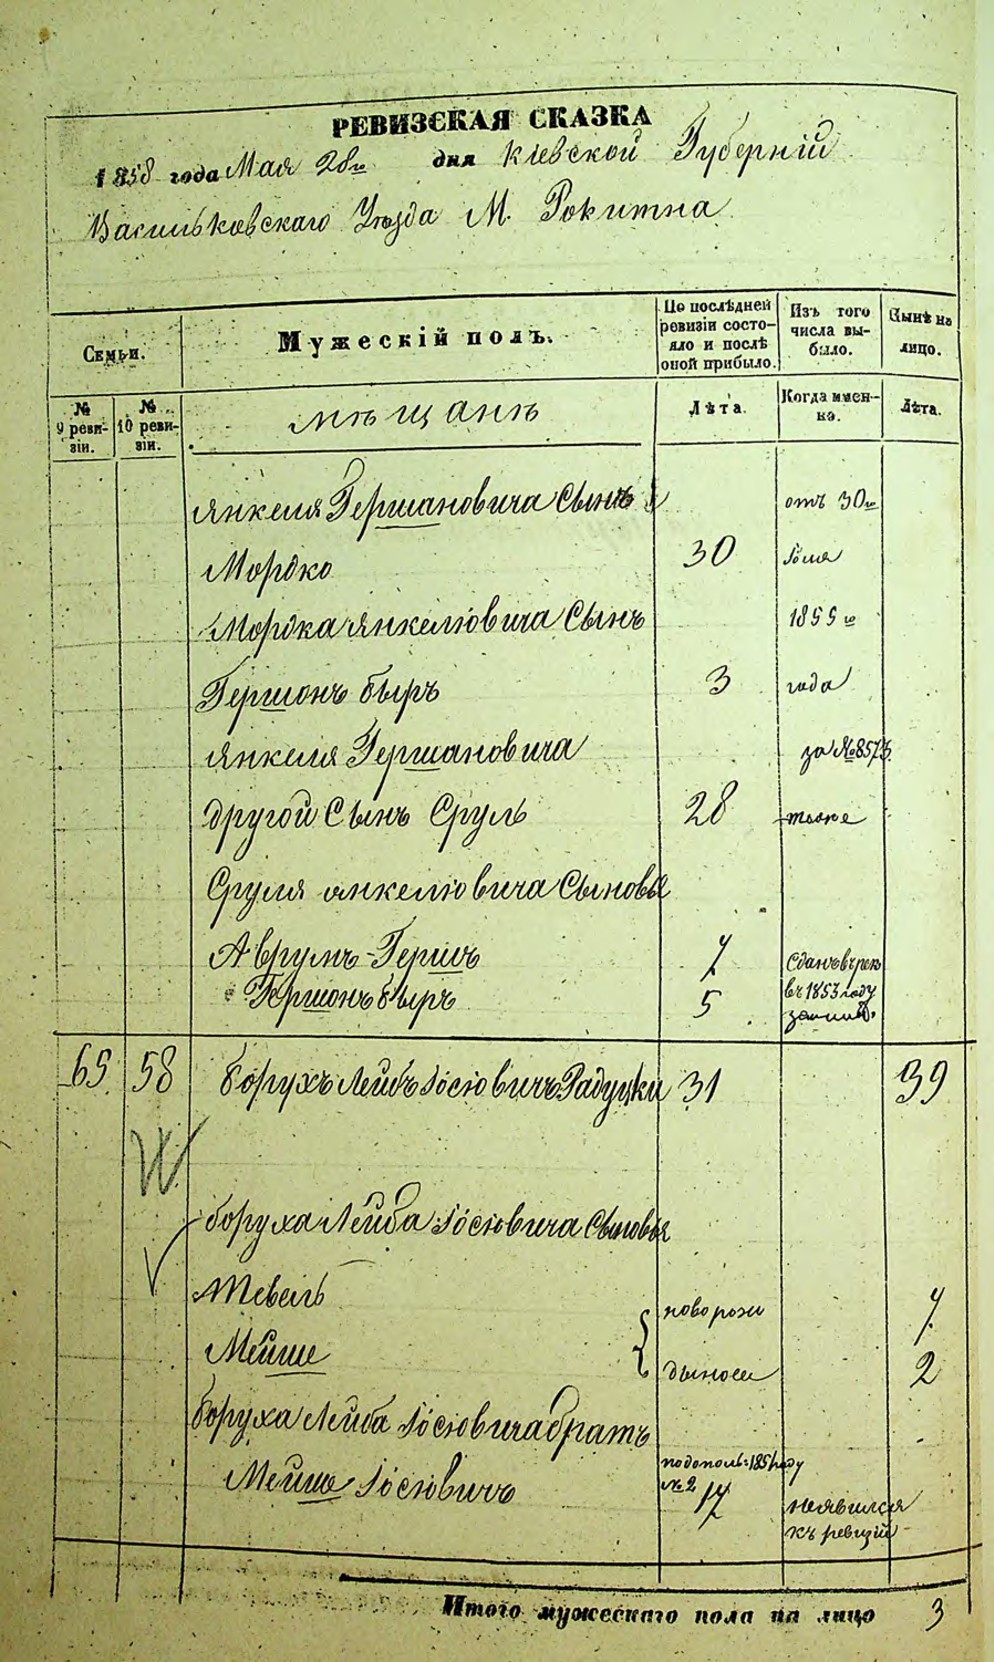 РЕВИЗСКАЯ СКАЗКА
1858 года Мая 28го дня Кіевской Губерніи
Васильковскаго Уѣзда М. Рокитна
Семьи.
Мужескій полъ.
По послѣдней ревизіи состояло и послѣ оной прибыло.
Изъ того числа выбыло.
Нынѣ на лицо.
№ 9 ревизіи.
№ 10 ревизіи.
мѣщанѣ
Лѣта.
Когда именно.
Лѣта.
Янкеля Гершановича Сынъ
отъ 30го
Мордко 30
Мордка Янкелiовича Сынъ
1855го
Гершонъ быръ 3 года
Янкеля Гершановича
за № 8573
другой Сынъ Сруль 28 тоже
Сруля Янкелiовича Сыновья
Аврумъ-Гершъ 7 Сданъ въ рек
Гершонъ быръ 5 въ 1853 году
65 58 Борухъ Лейбъ Іосiовичъ Радуцки 31 39
Боруха Лейба Іосiовича Сыновья
Тевель новорож 7
Мейше дыноси 2
Боруха Лейба Іосiовича братъ
Мейше Іосiовичъ
1851 году
№ 2 17 неявился
къ ревизіи
Итого мужескаго пола на лицо 3